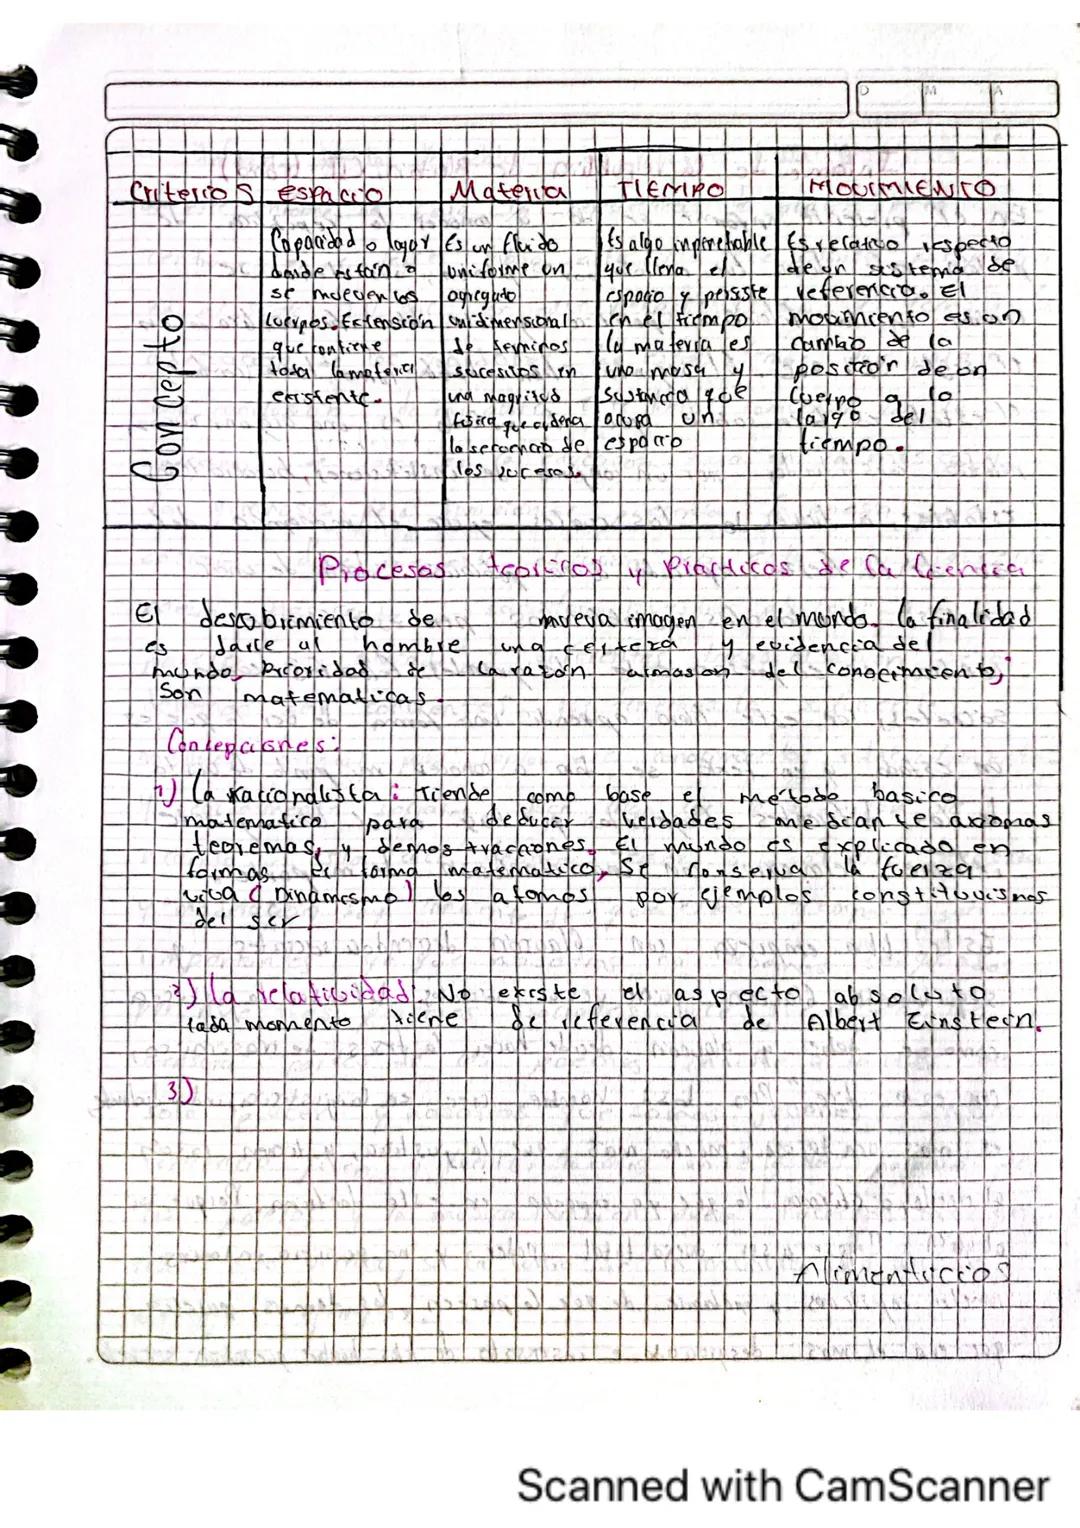 D M A
Criterios espacio Materia TIEMPO MOVIMIENTO
Concepto
Capacidad o lugar
donde estan o
se mueven los
cuerpos. Extensión
que contiene
toda la materia
existente.
Es un fluido
uniforme un
agregado
unidimensional
de terminos
sucesivos en
una magnitud
fisica que ordena
la secuencia de
los sucesos.
Es algo inpenetrable
que llena el
espacio y persiste
en el tiempo
la materia es
una masa y
sustancia que
ocupa un
espacio
Es relativo respecto
de un sistema de
referencia. El
movimiento es un
cambio de la
posición de un
cuerpo a lo
largo del
tiempo.
Procesos teoricos y Practicos de la Ciencia
El descubrimiento de nueva imagen en el mundo. la finalidad
es darle al hombre una certeza y evidencia del
mundo, Prioridad de la razón del conocimiento,
Son matematicas.
Concepciones:
1) La racionalista: Tiende como base el metodo basico
matematico para deducir verdades mediante axiomas
teoremas, y demostraciones. El mundo es explicado en
formas. forma matematico, Se conserva la fuerza
viva (Dinamismo) los atomos por ejemplos
del ser
2) La relatividad No existe el aspecto absoluto
cada momento tiene de referencia de Albert Einstein.
3)
Alimenticios
Scanned with CamScanner